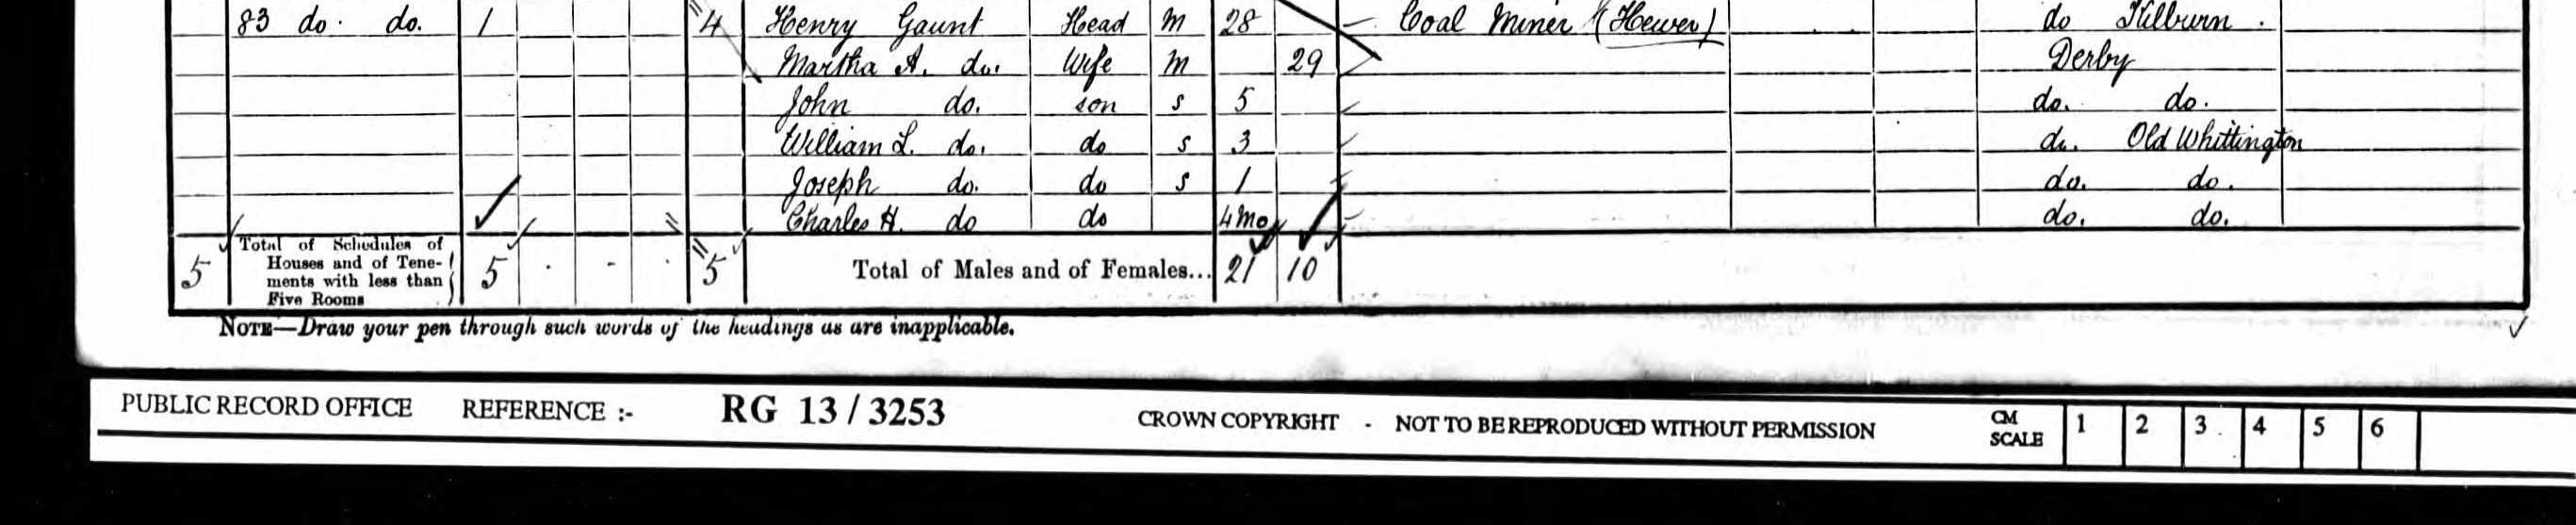 83 do. do. 1 4 Henry Gaunt Head M 28 Coal Miner (Hewer) do Kilburn.
Martha A. do. Wife M 29 Derby
John do. son s 5 do. do.
William L. do. do s 3 do. Old Whittington
Joseph do. do s 1 do. do.
Charles H. do do 4mo do. do.
5 Total of Schedules of Houses and of Tene-
ments with less than
Five Rooms 5 . - . 5 Total of Males and of Females... 21 10
NOTE—Draw your pen through such words of the headings as are inapplicable.
PUBLIC RECORD OFFICE REFERENCE :- RG 13 / 3253 CROWN COPYRIGHT - NOT TO BE REPRODUCED WITHOUT PERMISSION CM SCALE 1 2 3 4 5 6